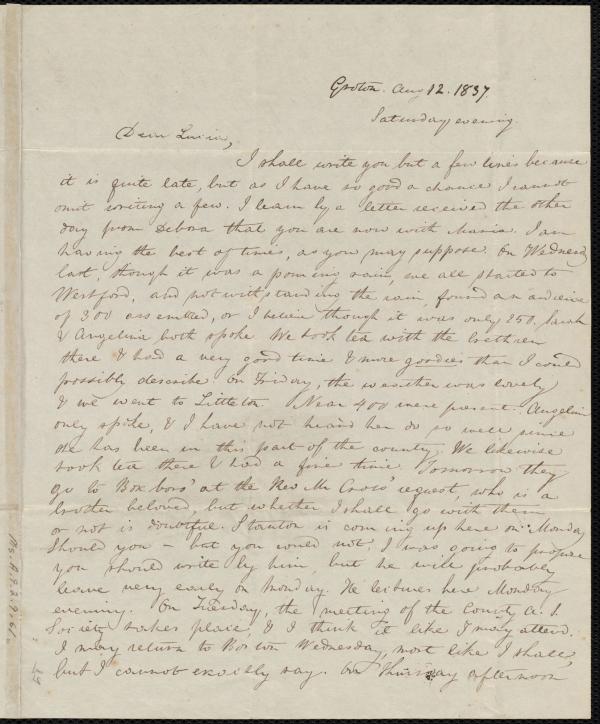 Groton. Aug 12. 1837.
Saturday evening.
Dear Lucia,
I shall write you but a few lines because
it is quite late, but as I have so good a chance I cannot
omit writing a few. I learn by a letter received the other
day from Debora that you are now with Maria. I am
having the best of times, as you may suppose. On Wednesday
last, though it was a pouring rain, we all started to
Westford, and notwithstanding the rain, found an audience
of 300 assembled, or I believe though it was only 250. Sarah
& Angelina both spoke. We took tea with the brethren
there & had a very good time & more goodies than I could
possibly describe. On Friday, the weather was lovely
& we went to Littleton. Near 400 were present. Angelina
only spoke, & I have not heard her do so well since
she has been in this part of the country. We likewise
took tea there & had a fine time. Tomorrow they
go to Boxboro' at the Rev Mr Cross' request, who is a
brother beloved, but whether I shall go with them
or not is doubtful. Stanton is coming up here on Monday
Should you - but you would not. I was going to propose
you should write by him, but he will probably
leave very early on Monday. He lectures here Monday
evening. On Tuesday, the meeting of the County A. S.
Society takes place, & I think it like I may attend.
I may return to Boston Wednesday, most like I shall,
but I cannot exactly say. On Thursday afternoon
Ms.A.9.2.9.61